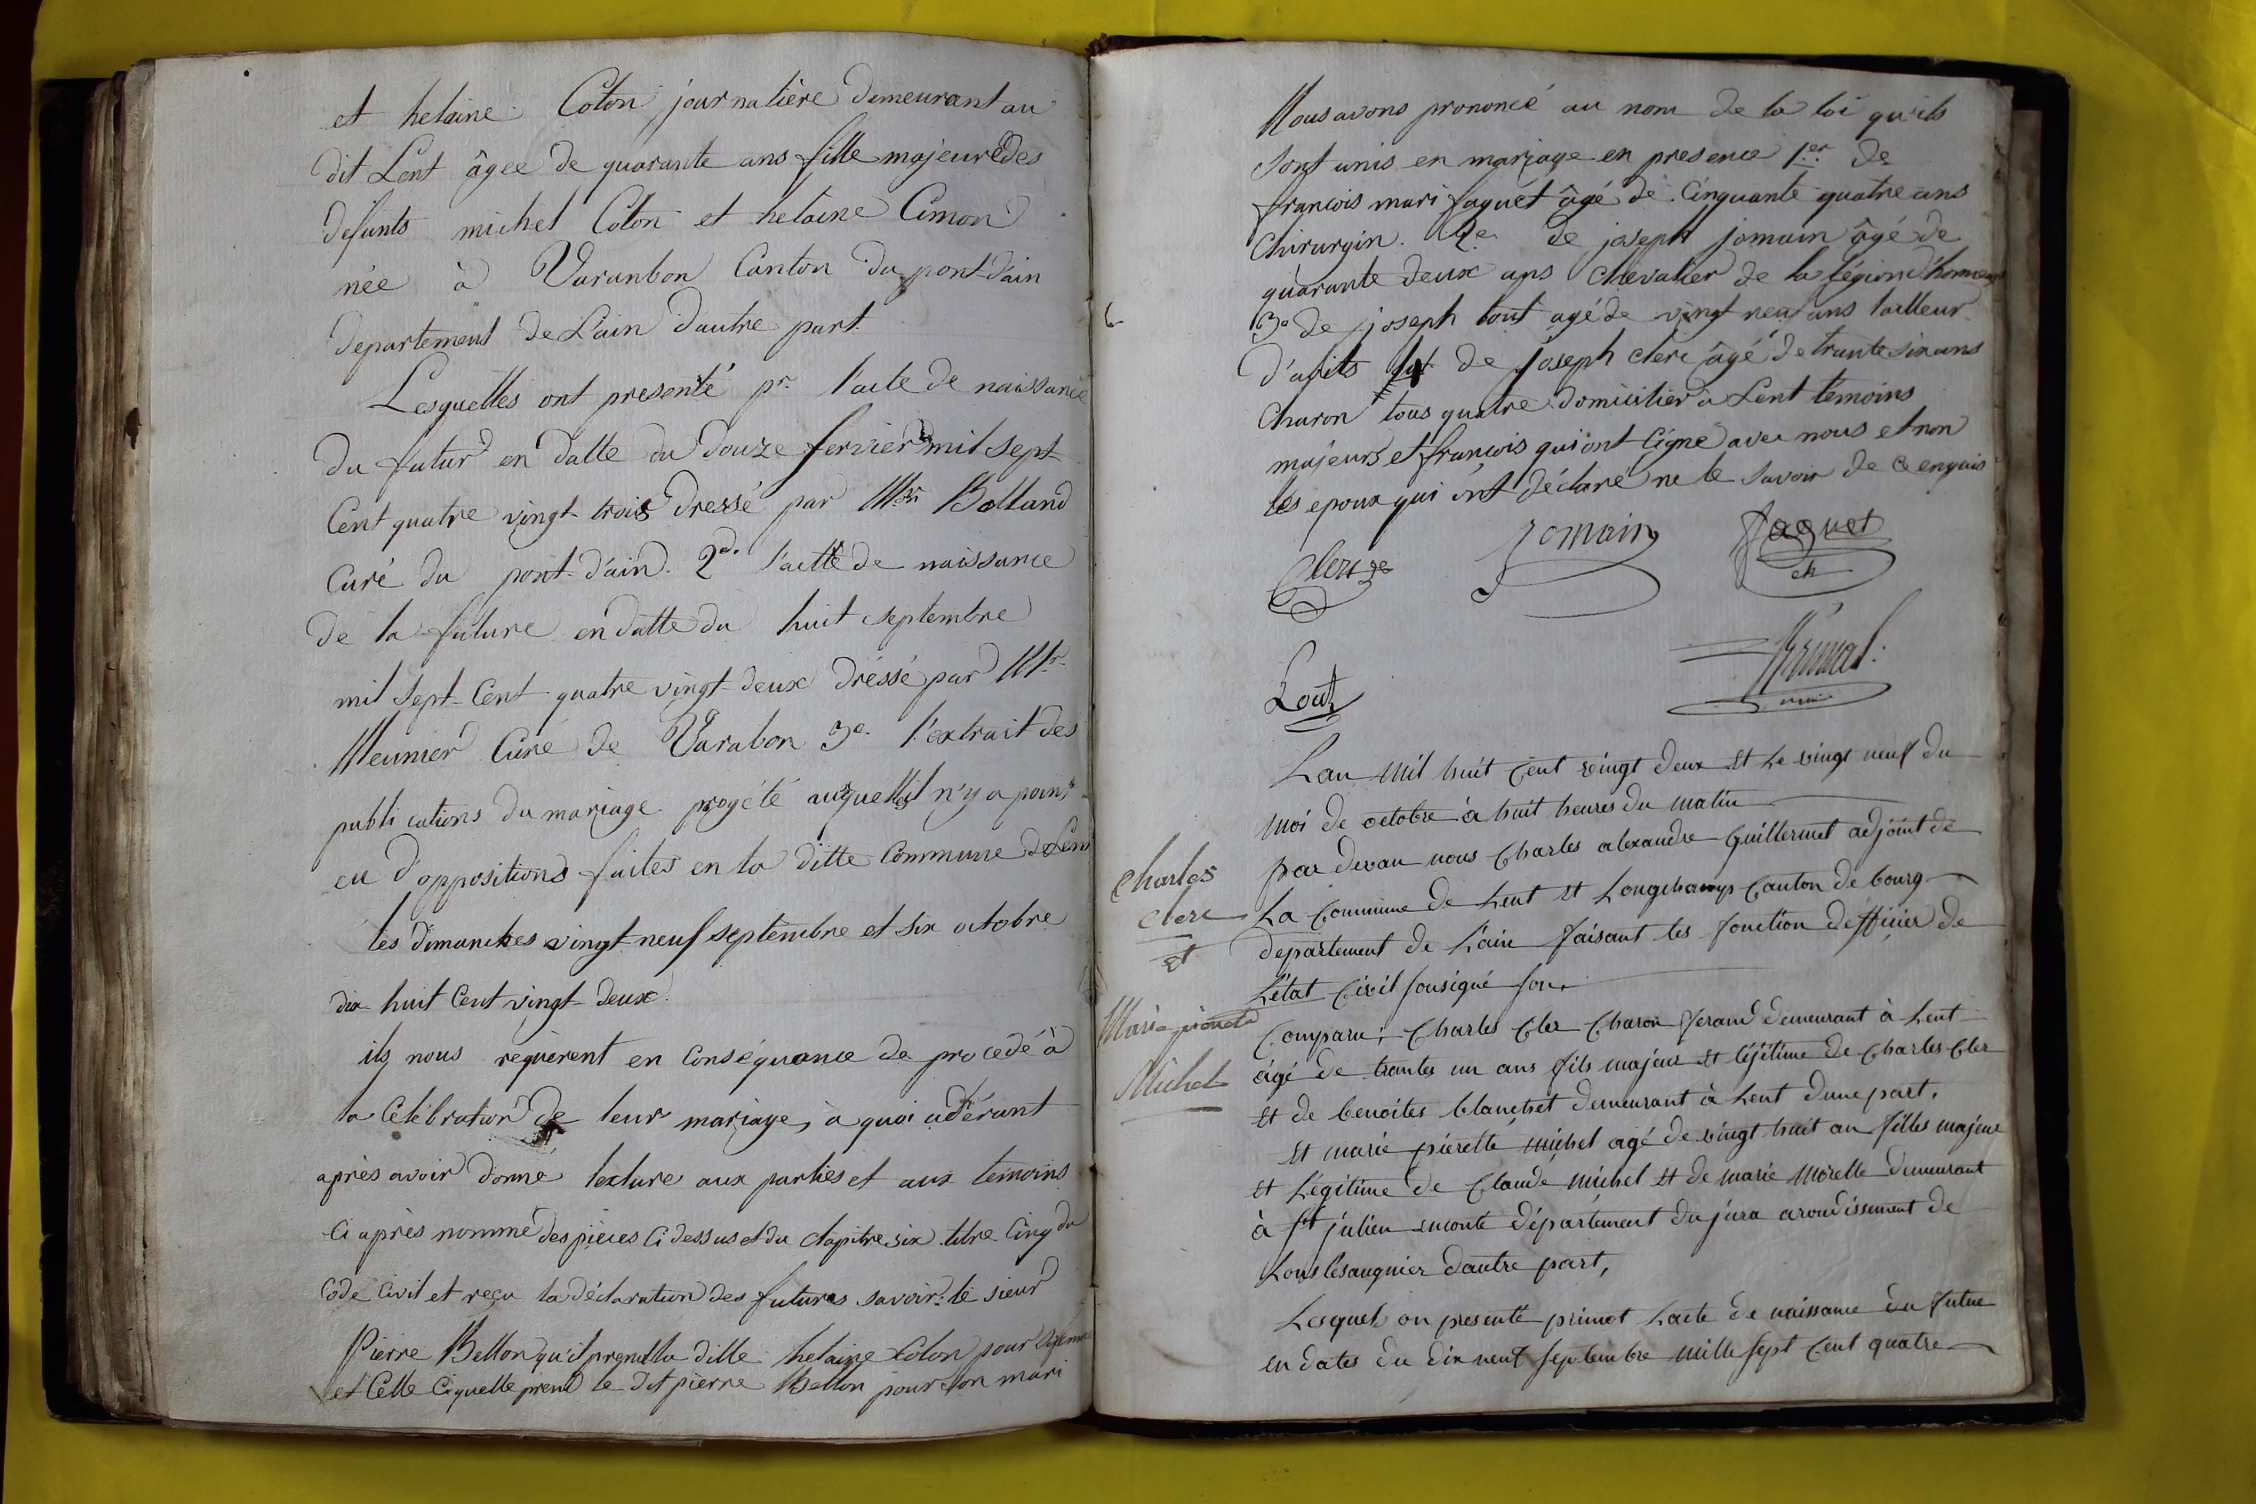 et helaine Colon journaliere demeurant au
dit Lent âgee de quarante ans fille majeure des
defunts michel Colon et helaine Cimon
née à Varanbon Canton du pont-dain
departement de L'ain d'autre part.
Lesquelles ont presenté pr. l'acte de naissance
du futur en datte du douze fervier mil sept
Cent quatre vingt-trois dressé par Mr. Bolland
Curé du pont-d'ain. 2d. l'actte de naissance
de la future en datte du huit septembre
mil sept-Cent quatre vingt-deux dréssé par Mr.
Meunier Curé de Varabon 3e. l'extrait des
publications du mariage progété auxquelles il n'y a point
eu d'oppositions faites en la ditte Commune de Lent
les dimanches vingt-neuf septembre et six octobre
dix huit Cent vingt-deux.
ils nous requerent en conséquance de procedé à
la Célébration de leur mariage, à quoi adérant
après avoir donné lecture aux parties et aux temoins
Ci après nommé des pièces Ci dessus et du chapitre six titre Cinq du
Code Civil et reçu la déclaration des futures savoir: le sieur
Pierre Bellon qu'il prend la ditte helaine Colon pour sa femme
et Celle Ci quelle prend le dit pierre Bellon pour son mari
Nous avons prononcé au nom de la loi qu'ils
sont unis en mariage en presence 1.er de
francois mari faguet âgé de Cinquante quatre ans
Chirurgin. 2e. de joseph jomain âgé de
quarante deux ans Chevalier de la légion d'honneur
3e de joseph lout agé de vingt neuf ans tailleur
d'abits de joseph clerc âgé de trante six ans
Charon tous quatre domicilier à Lent temoins
majeurs et francois qui ont Cigné avec nous et non
les epoux qui ont déclaré ne le savoir de ce enquis
Clerc Jomain Faguet
Lout
Charles
Clerc
et
Marie pierrette
Michel
Lan mil huit Cent vingt deux et le vingt neuf du
moi de octobre à huit heures du matin
par devan nous Charles alexandre Guillermet adjoint de
La Commune de Lent et Longchamps Canton de bourg
departement de Lain faisant les fonction defficier de
Létat Civil sousigné son.
Comparu; Charles Cler Charon ferand demeurant à Lent
agé de trantes un ans fils majeur et légitime de Charles Cler
et de benoites blanchet demeurant à Lent dune part,
et marie pierette michel agé de vingt huit an filles majeur
et Légitime de Claude michel et de marie morelle demeurant
à st julien département du jura arondissement de
Lons lesaugnier dautre part,
Lesquel on presenté primot Lacte de naissance du futur
en dates du dix neuf septembre mille sept Cent quatre